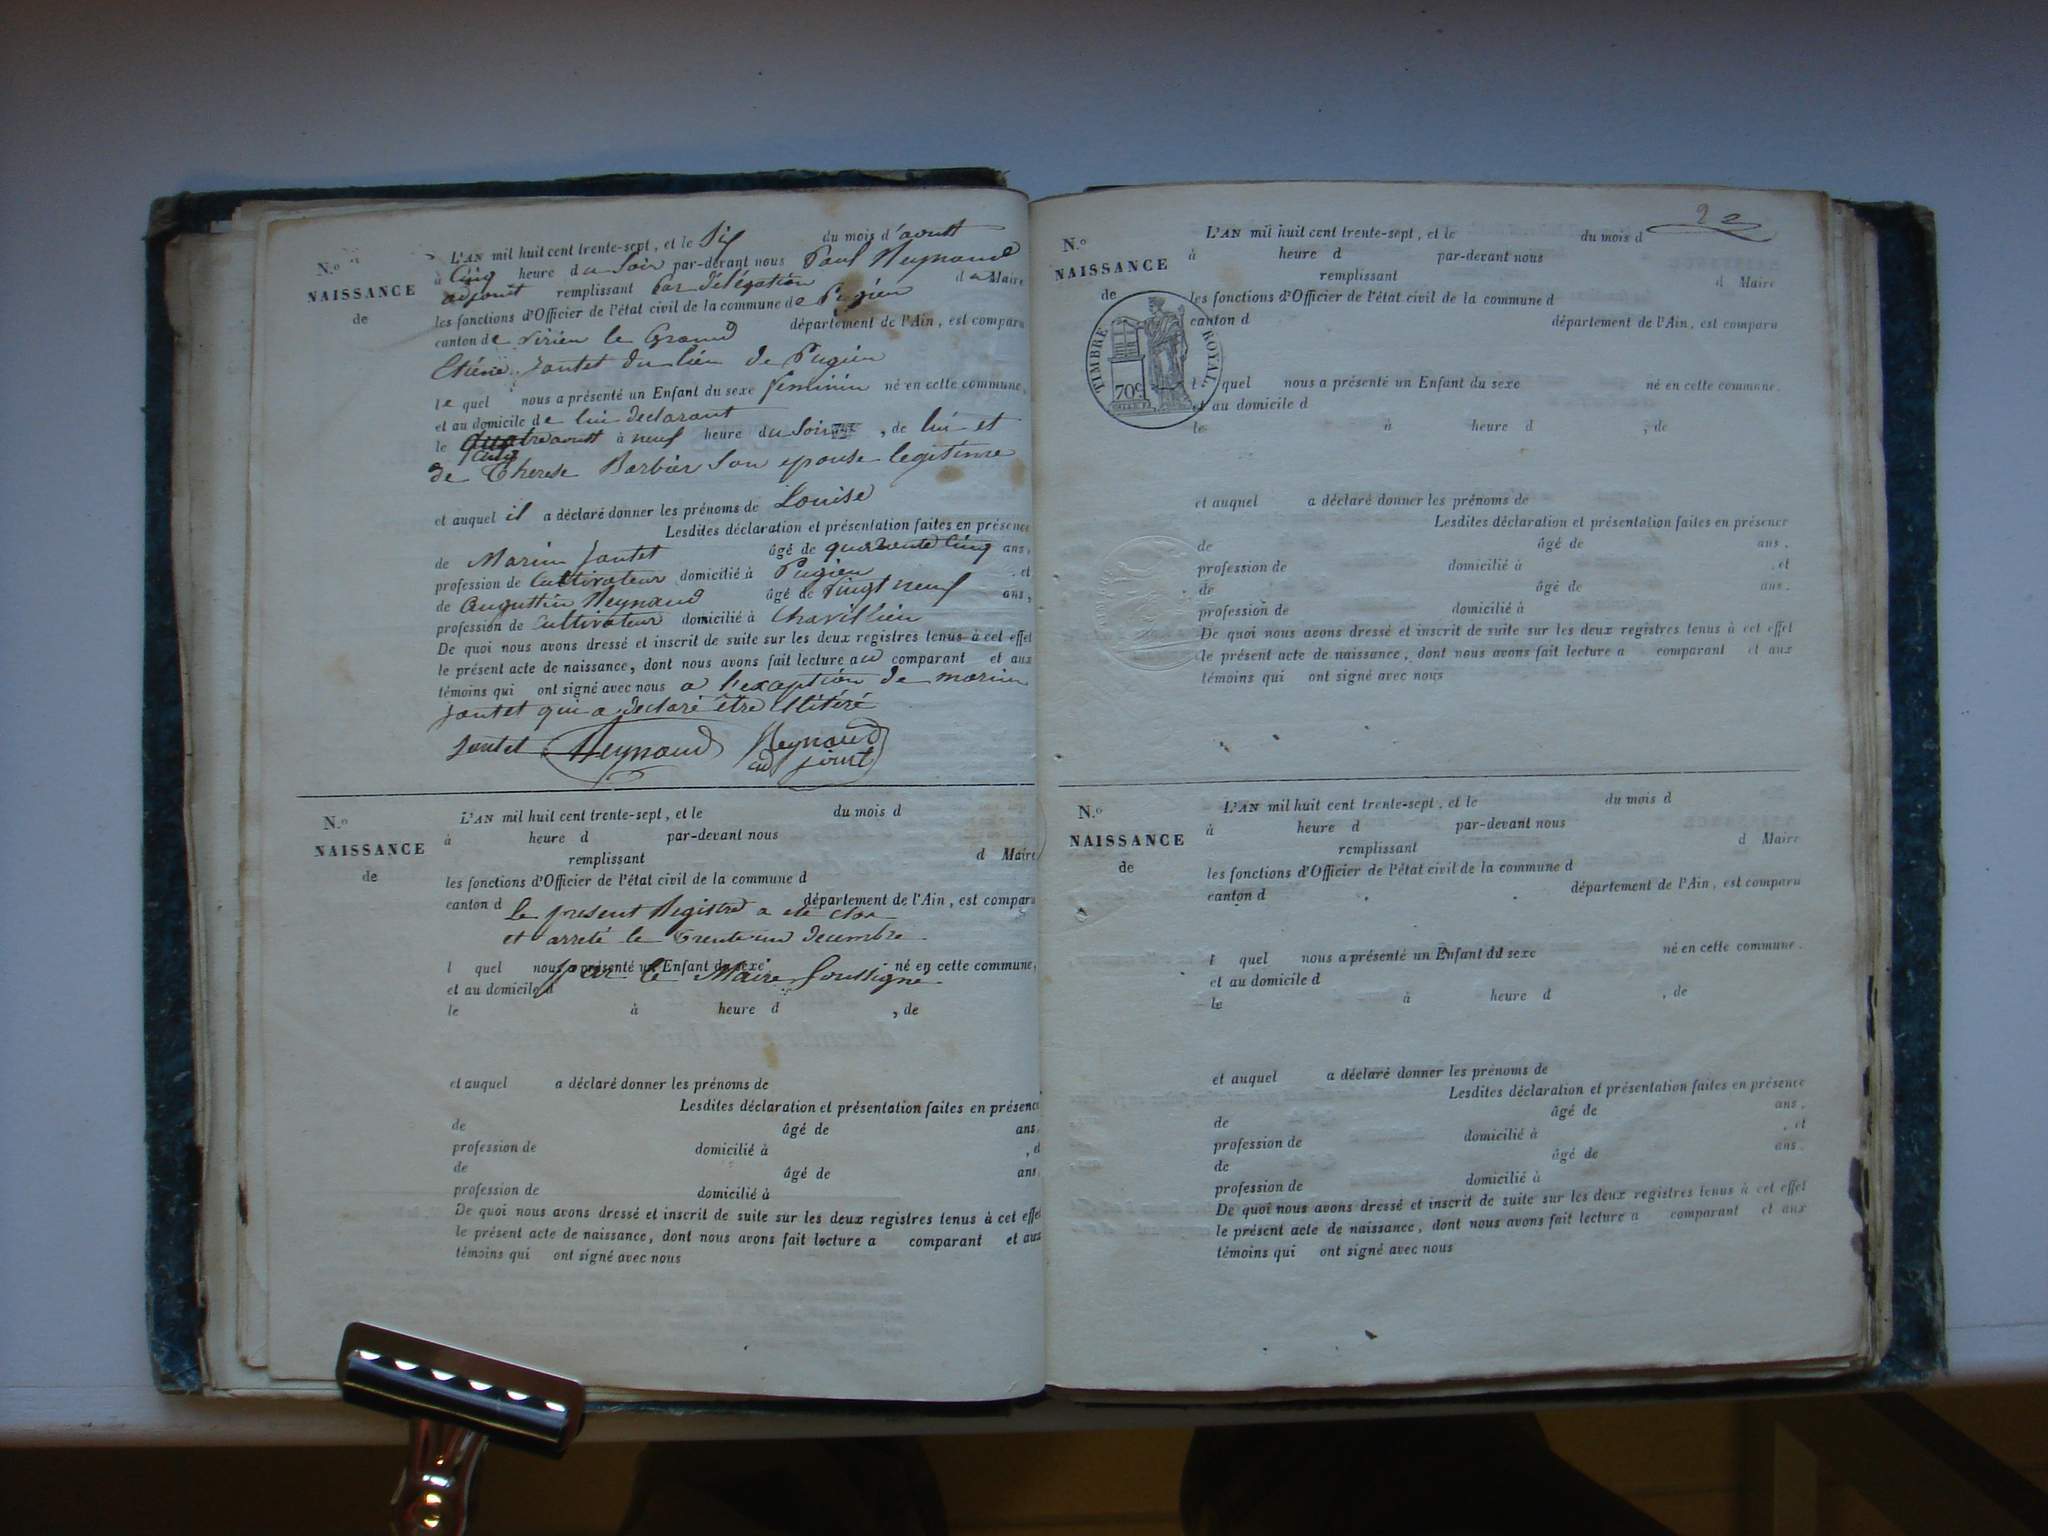 N.º
NAISSANCE
de
L'AN mil huit cent trente-sept, et le Six du mois d'aoust
à Cinq heure du Soir par-devant nous Paul Reynaud
adjoint remplissant par délégation du Maire
les fonctions d'Officier de l'état civil de la commune de Pugieu
canton de Virieu le Grand département de l'Ain, est comparu
Jantet du lieu de Pugieu
le quel nous a présenté un Enfant du sexe feminin né en cette commune,
et au domicile de lui declarant
le quatre aoust à neuf heure du Soir , de lui et
cinq
de Therese Barbier Son epouse legitime
et auquel il a déclaré donner les prénoms de Louise
Lesdites déclaration et présentation faites en présence
de Marin Jantet âgé de quarente Cinq ans,
profession de Cultivateur domicilié à Pugieu , et
de augustin Reynaud âgé de vingt neuf ans,
profession de Cultivateur domicilié à Chavillieu
De quoi nous avons dressé et inscrit de suite sur les deux registres tenus à cet effet
le présent acte de naissance, dont nous avons fait lecture au comparant et aux
témoins qui ont signé avec nous a l'exception de marin
Jantet qui a declaré être illitéré
Jantet Reynaud Reynaud
adjoint
N.º
NAISSANCE
de
L'AN mil huit cent trente-sept, et le du mois d
à heure d par-devant nous
remplissant d Maire
les fonctions d'Officier de l'état civil de la commune d
canton d département de l'Ain, est comparu
Le present Registre a eté clos
et arreté le trente un decembre
l quel nous a présenté un Enfant du sexe né en cette commune,
par le Maire Soussigné
et au domicile d
le à heure d , de
et auquel a déclaré donner les prénoms de
Lesdites déclaration et présentation faites en présence
de âgé de ans,
profession de domicilié à , et
de âgé de ans,
profession de domicilié à
De quoi nous avons dressé et inscrit de suite sur les deux registres tenus à cet effet
le présent acte de naissance, dont nous avons fait lecture a comparant et aux
témoins qui ont signé avec nous
N.º
NAISSANCE
de
TIMBRE ROYAL
70c
L'AN mil huit cent trente-sept, et le du mois d
à heure d par-devant nous
remplissant d Maire
les fonctions d'Officier de l'état civil de la commune d
canton d département de l'Ain, est comparu
l quel nous a présenté un Enfant du sexe né en cette commune,
et au domicile d
le à heure d , de
et auquel a déclaré donner les prénoms de
Lesdites déclaration et présentation faites en présence
de âgé de ans,
profession de domicilié à , et
de âgé de ans,
profession de domicilié à
De quoi nous avons dressé et inscrit de suite sur les deux registres tenus à cet effet
le présent acte de naissance, dont nous avons fait lecture a comparant et aux
témoins qui ont signé avec nous
N.º
NAISSANCE
de
L'AN mil huit cent trente-sept, et le du mois d
à heure d par-devant nous
remplissant d Maire
les fonctions d'Officier de l'état civil de la commune d
canton d département de l'Ain, est comparu
l quel nous a présenté un Enfant du sexe né en cette commune,
et au domicile d
le à heure d , de
et auquel a déclaré donner les prénoms de
Lesdites déclaration et présentation faites en présence
de âgé de ans,
profession de domicilié à , et
de âgé de ans,
profession de domicilié à
De quoi nous avons dressé et inscrit de suite sur les deux registres tenus à cet effet
le présent acte de naissance, dont nous avons fait lecture a comparant et aux
témoins qui ont signé avec nous